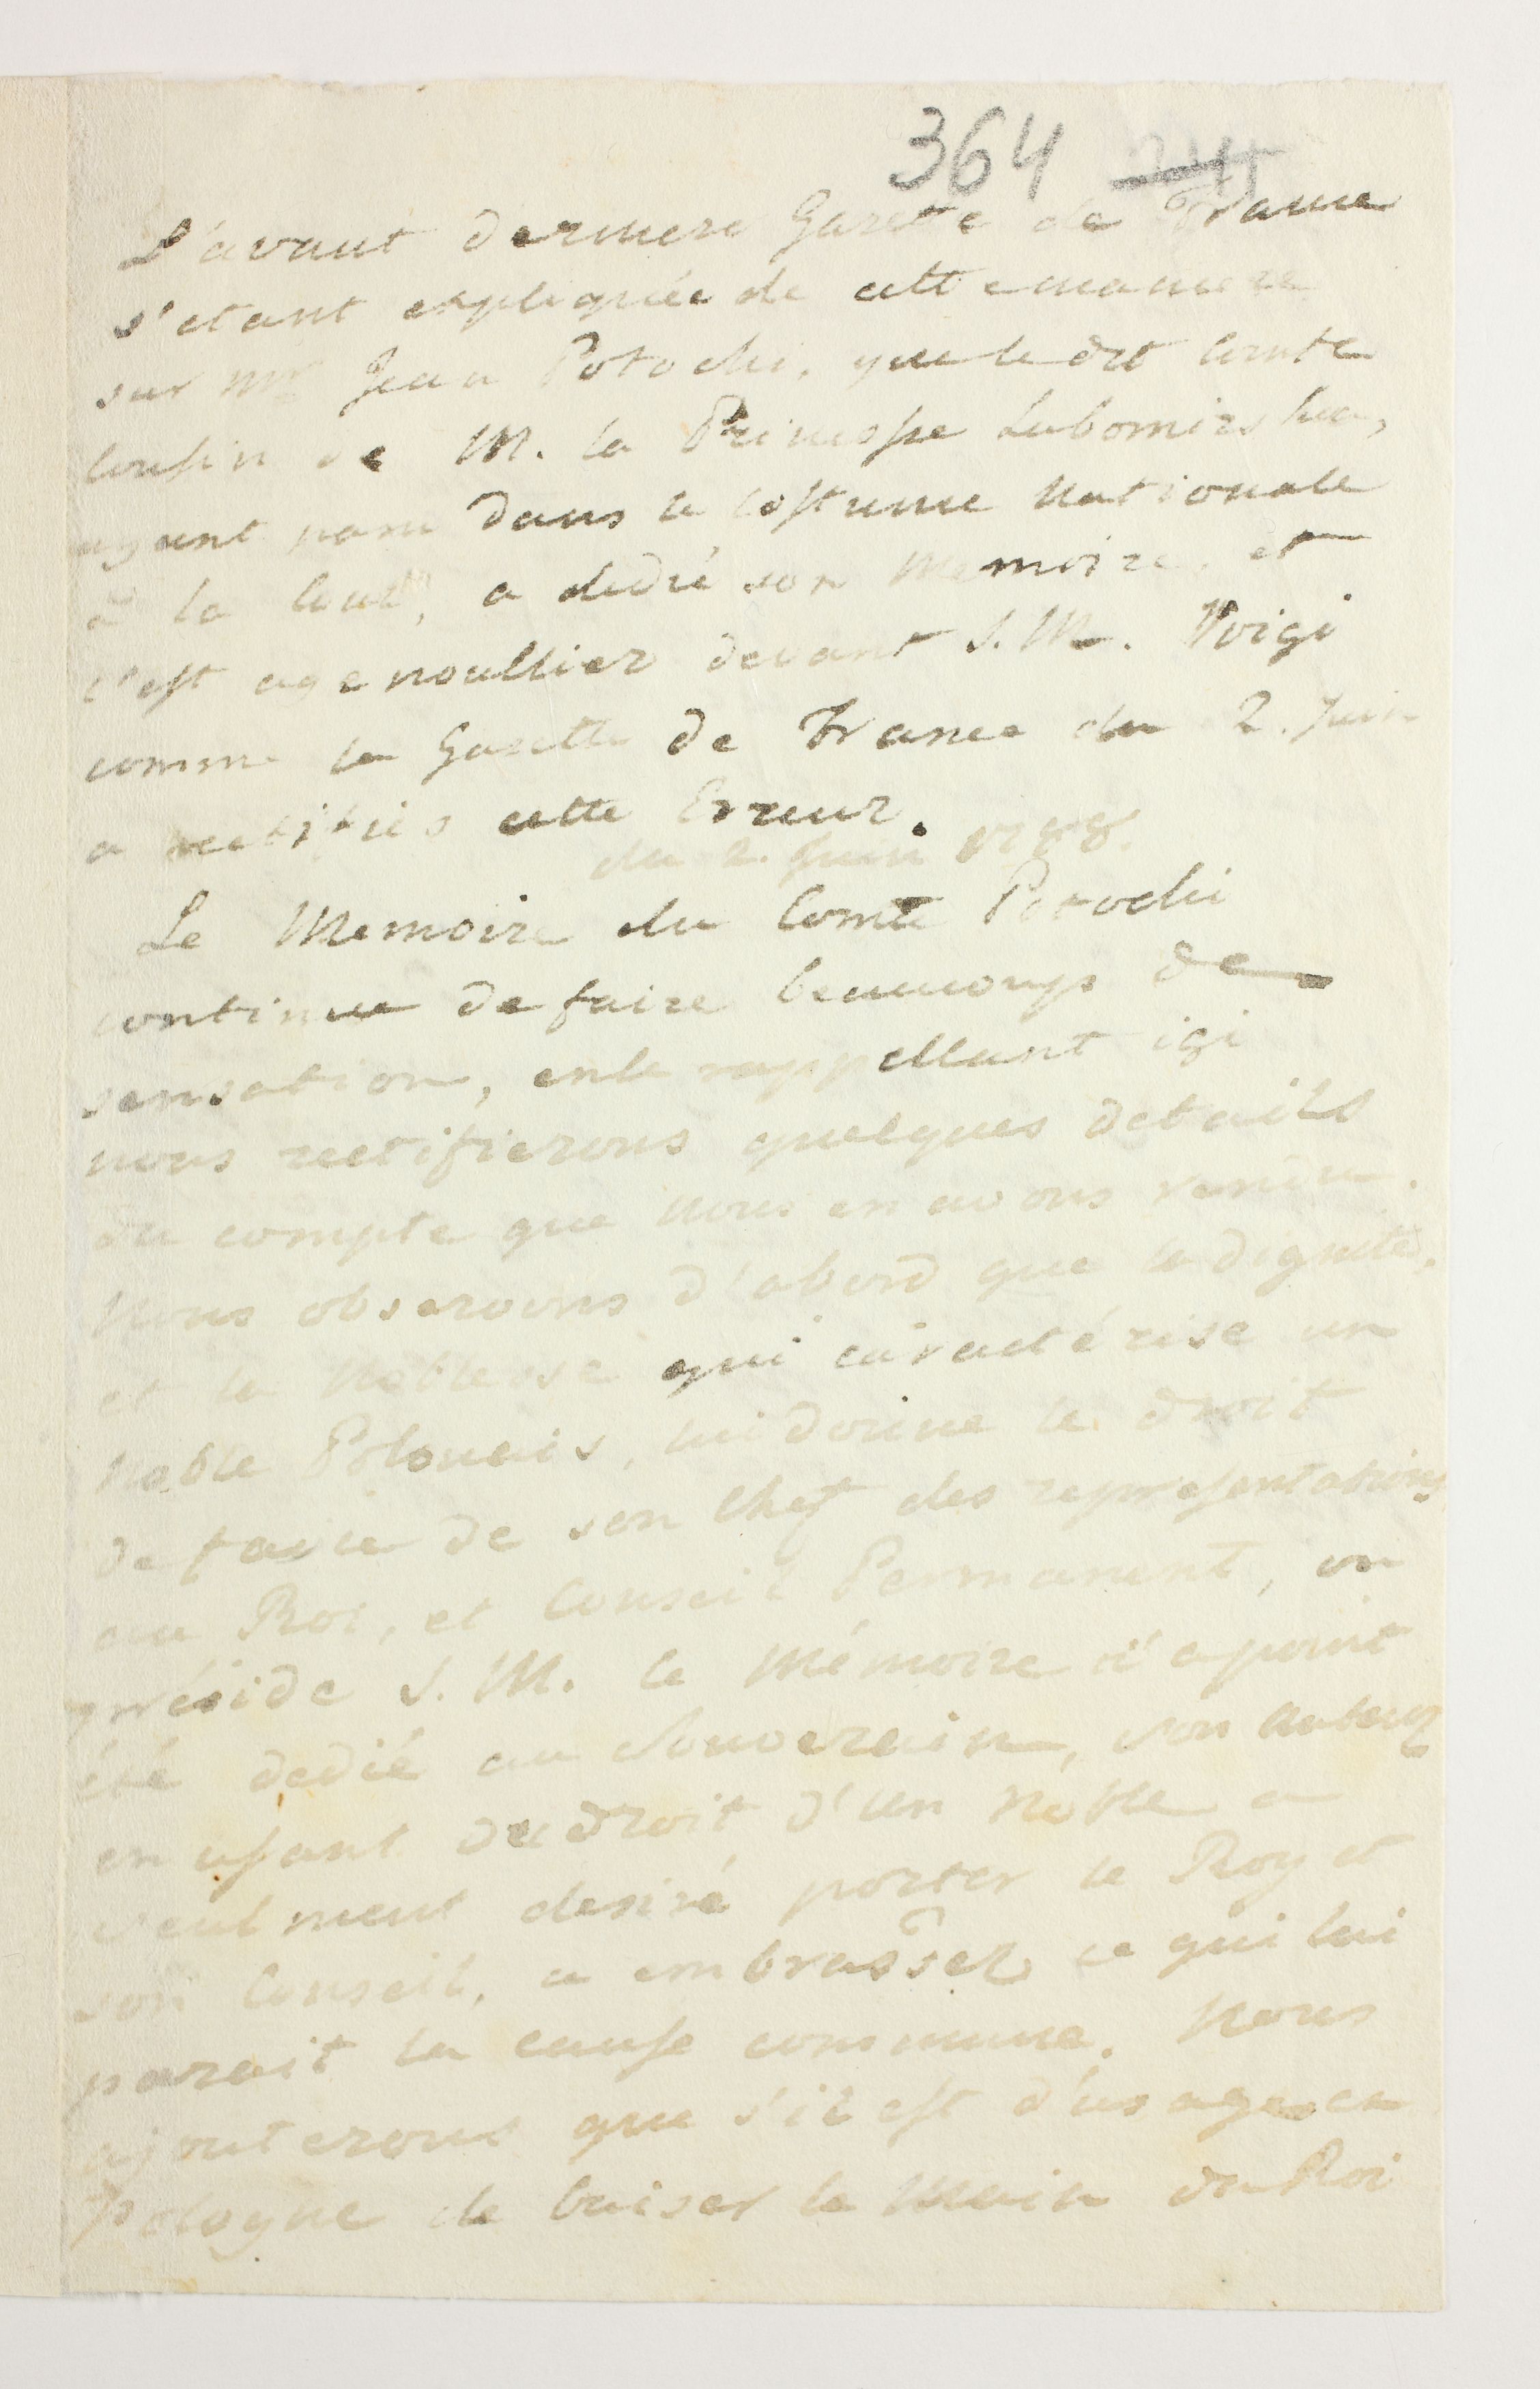 364
L'avant derniere Gazette de France
s'etant expliquée de cette maniere
sur Mr Jean Potocki, que le dit Comte
Cousin de M. la Princesse Lubomirska,
ayant paru dans le Costume Nationale
à la Cour, a dedié son Memoire, et
c'est agenoullier devant S. M. Voigi
comme la Gazette de France du 2. Juin
a rectifies cette Erreur.
du 2. Juin 1788.
Le Memoire du Comte Potocki
continue de faire beaucoups de
sensation, en le rappellant igi
nous rectifierons quelques details
du compte que nous en avons rendu.
Nous observons d'abord que la dignité,
et la Noblesse qui caractérise un
Noble Polonais, lui donne le droit
de faire de son Chef des representations
au Roi, et Conseil Permanent, ou
préside S. M. le Mémoire n'a point
été dedié au Souverain, son Auteur
en usant du droit d'un Noble a
seulment desiré porter le Roy et
son Conseil, a embrasser ce qui lui
parait la cause commune. Nous
ajouterons que s'il est d'usage en
Pologne de baiser la Main du Roi